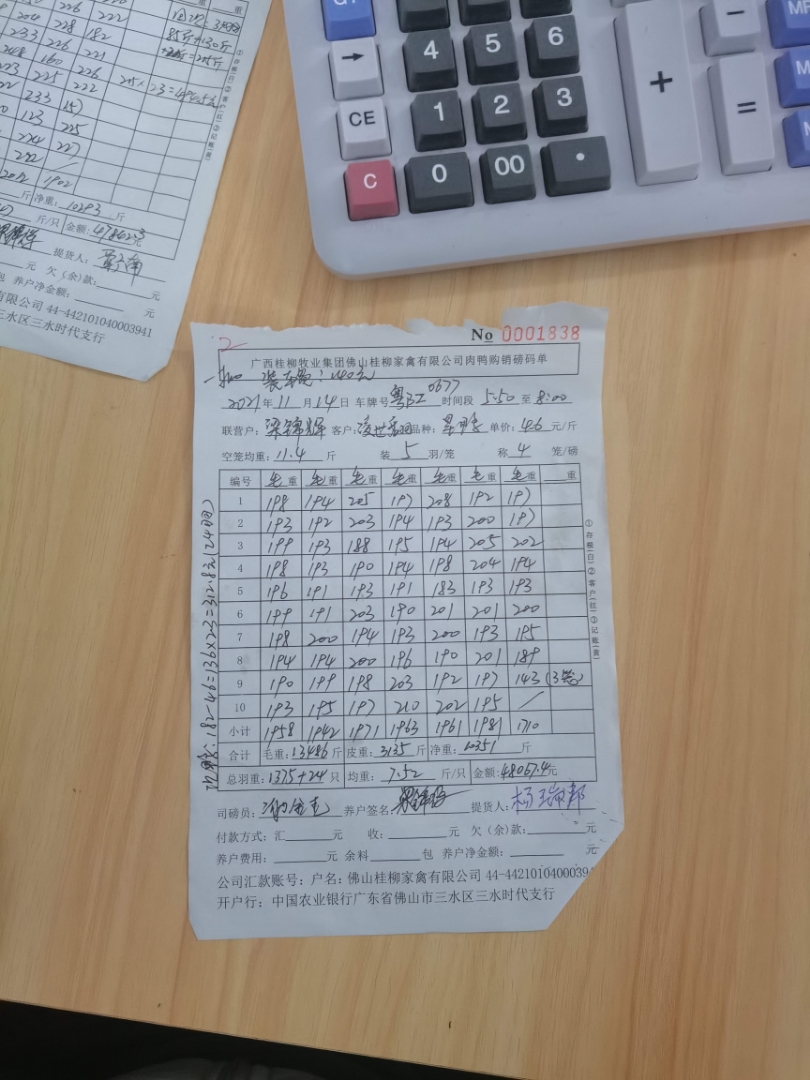 4 5 6
→
CE 1 2 3 + =
C 0 00 •
−
226 222
204 228 182
233 226 221
160 226
225 222
233
123 225
1902
斤 净重: 10293 斤
斤/只 金额: 元
提货人:
元 欠(余)款: 元
包 养户净金额: 元
有限公司 44-442101040003941
三水区三水时代支行
2
No 0001838
广西桂柳牧业集团佛山桂柳家禽有限公司肉鸭购销磅码单
装车费: 140元
2021年11月14日 车牌号 粤 0677 时间段 5:50 至 8:00
联营户: 梁锦辉 客户: 品种: 单价: 4.6 元/斤
空笼均重: 11.4 斤 装 5 羽/笼 称 4 笼/磅
编号 毛重 毛重 毛重 毛重 毛重 毛重 毛重 重
1 198 194 205 197 208 192 197
2 193 192 203 194 193 200 197
3 199 193 188 195 194 205 202
4 198 193 190 194 198 204 194
5 196 191 193 191 183 193 193
6 199 191 203 190 201 201 200
7 198 200 194 193 200 193 195
8 194 194 200 196 190 201 189
9 190 199 198 203 192 197 143 (3笼)
10 193 195 197 210 202 195 /
小计 1958 1942 1971 1963 1961 1981 1710
合计 毛重: 13486 斤 皮重: 3135 斤 净重: 10351 斤
总羽重: 1375+24 只 均重: 7.52 斤/只 金额: 48067.4元
182-46=136×2.3=312.8元(24只)
①存根(白)②客户(红)③记帐(黄)
司磅员: 养户签名: 提货人: 杨瑞邦
付款方式: 汇 元 收: 元 欠(余)款: 元
养户费用: 元 余料 包 养户净金额: 元
公司汇款账号: 户名: 佛山桂柳家禽有限公司 44-44210104000394
开户行: 中国农业银行广东省佛山市三水区三水时代支行